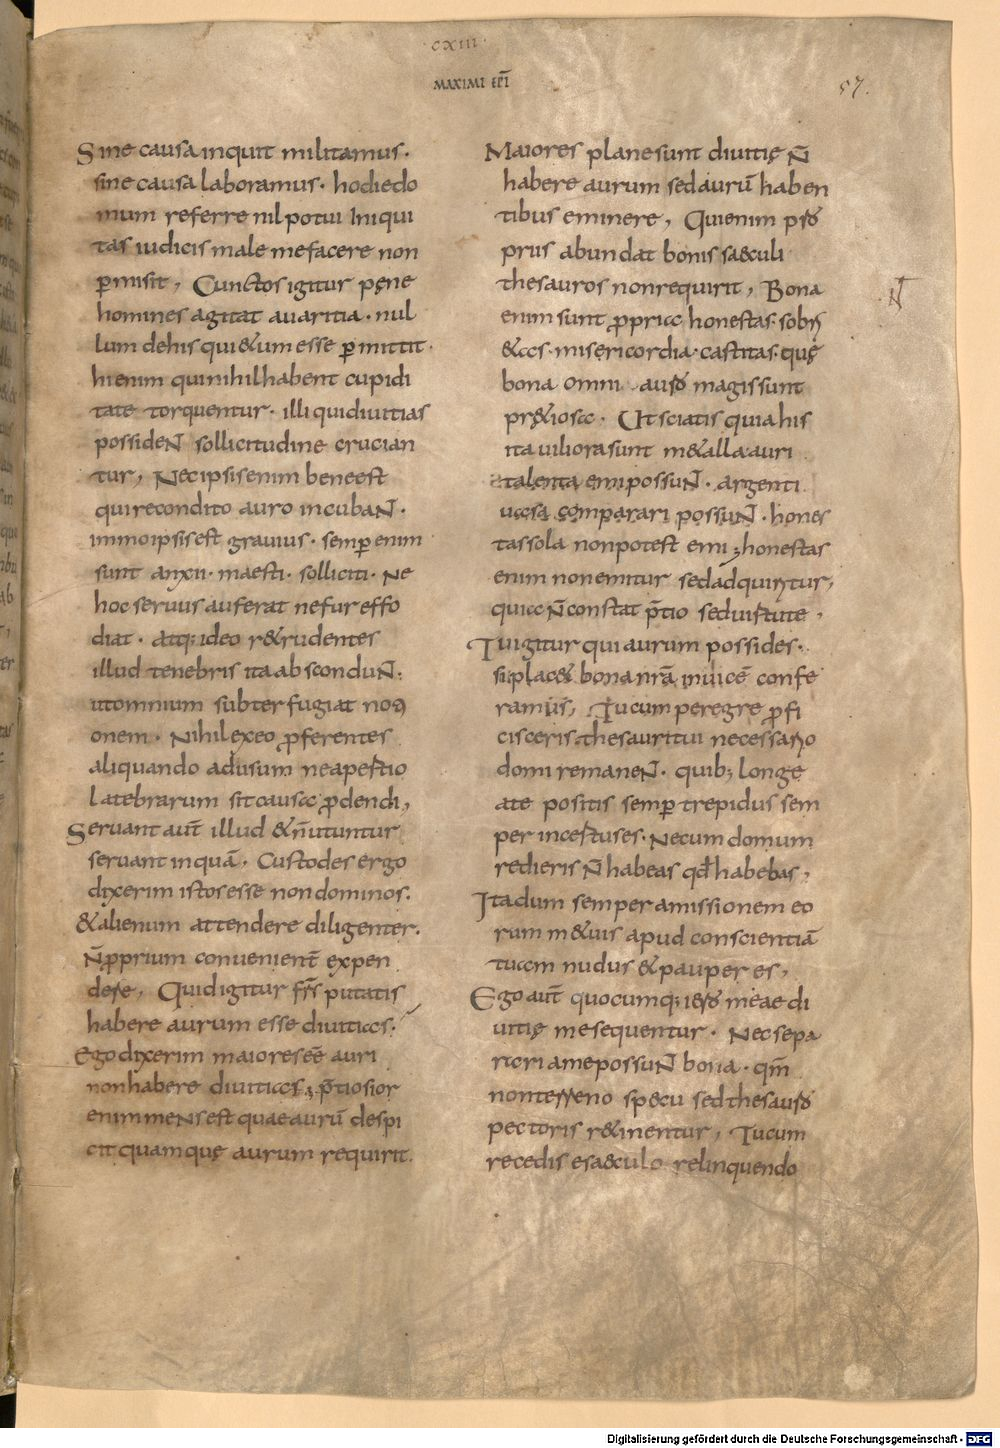 · CXIII ·
MAXIMI EP̅I
57.
Sine causa inquit militamus·
sine causa laboramus· hodie do
mum referre nil potui Iniqui
tas iudicis male me facere non
ꝑmisit, Cunctos igitur pęne
homines agitat auaritia· nul
lum de his qui & um esse ꝑmittit·
hi enim qui nihil habent cupidi
tate torquentur· illi qui diuitias
possideN̅ sollicitudine crucian
tur, Nec ipsis enim bene est
qui recondito auro incubaN̅·
immo ipsis est grauius· semꝑ enim
sunt anxii· maesti· solliciti· Ne
hoc seruus auferat ne fur effo
diat· atq; ideo r&rudentes
illud tenebris ita absconduN̅;
ut omnium subterfugiat noti
onem· Nihil ex eo ꝓferentes
aliquando ad usum ne apertio
latebrarum sit causa ꝓdendi,
Seruant aut̅ illud & n̅ utuntur
seruant inquā· Custodes ergo
dixerim istos esse non dominos·
& alienum attendere diligenter·
N̅ ꝓprium conuenient̅ expen
dere, Quid igitur fr̅s putatis
habere aurum esse diuitias·
Ego dixerim maiores ee̅ auri
non habere diuitias; p̅tiosior
enim meNs est quae aurū despi
cit quam quę aurum requirit·
Maiores plane sunt diuitię N̅
habere aurum sed aurū haben
tibus eminere, Qui enim ꝓ
prus abundat bonis saeculi
thesauros non requirit, Bona
enim sunt ꝓpria honestas· sobri
&as· misericordia· castitas· quę
bona omni auro magis sunt
pr&iosa· Ut sciatis quia his
ita uiliora sunt m&alla auri
talenta emi possuN̅· argenti
uasa comparari possuN̅· hones
tas sola non potest emi; honestas
enim non emitur sed adquiritur,
quia N̅ constat p̅tio sed uirtute,
Tu igitur qui aurum possides·
si plac& bona nr̅a inuicē confe
ramus, Tu cum peregre ꝓfi
cisceris thesauri tui necessario
domi remaneN̅· quib; longe
a te positis semꝑ trepidus sem
per incertus es· Ne cum domum
redieris N̅ habeas qd̅ habebas,
Ita dum semper amissionem eo
rum m&uis apud conscientiā
tuam nudus & pauper es,
Ego aut̅ quocumq; iero meae di
uitię me sequentur· Nec sepa
rari a me possuN̅ bona· qm̅
non terreno specu sed thesauro
pectoris r&inentur, Tu cum
recedis e saeculo relinquendo
N̅
Digitalisierung gefördert durch die Deutsche Forschungsgemeinschaft - DFG